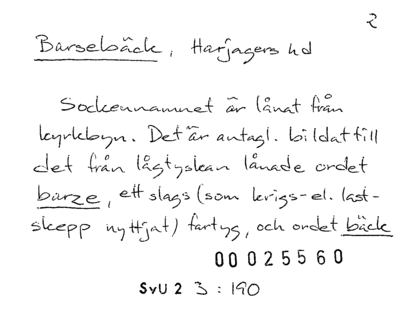 2
Barsebäck, Harjagers hd
Sockennamnet är lånat från
kyrkbyn. Det är antagl. bildat till
det från lågtyskan lånade ordet
barze, ett slags (som krigs- el. last-
skepp nyttjat) fartyg, och ordet bäck
00025560
SvU 2 3 : 190